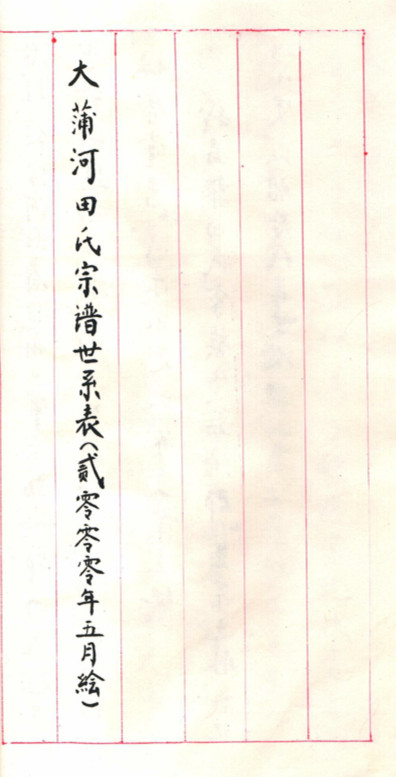 大蒲河田氏宗谱世系表(貳零零零年五月绘)